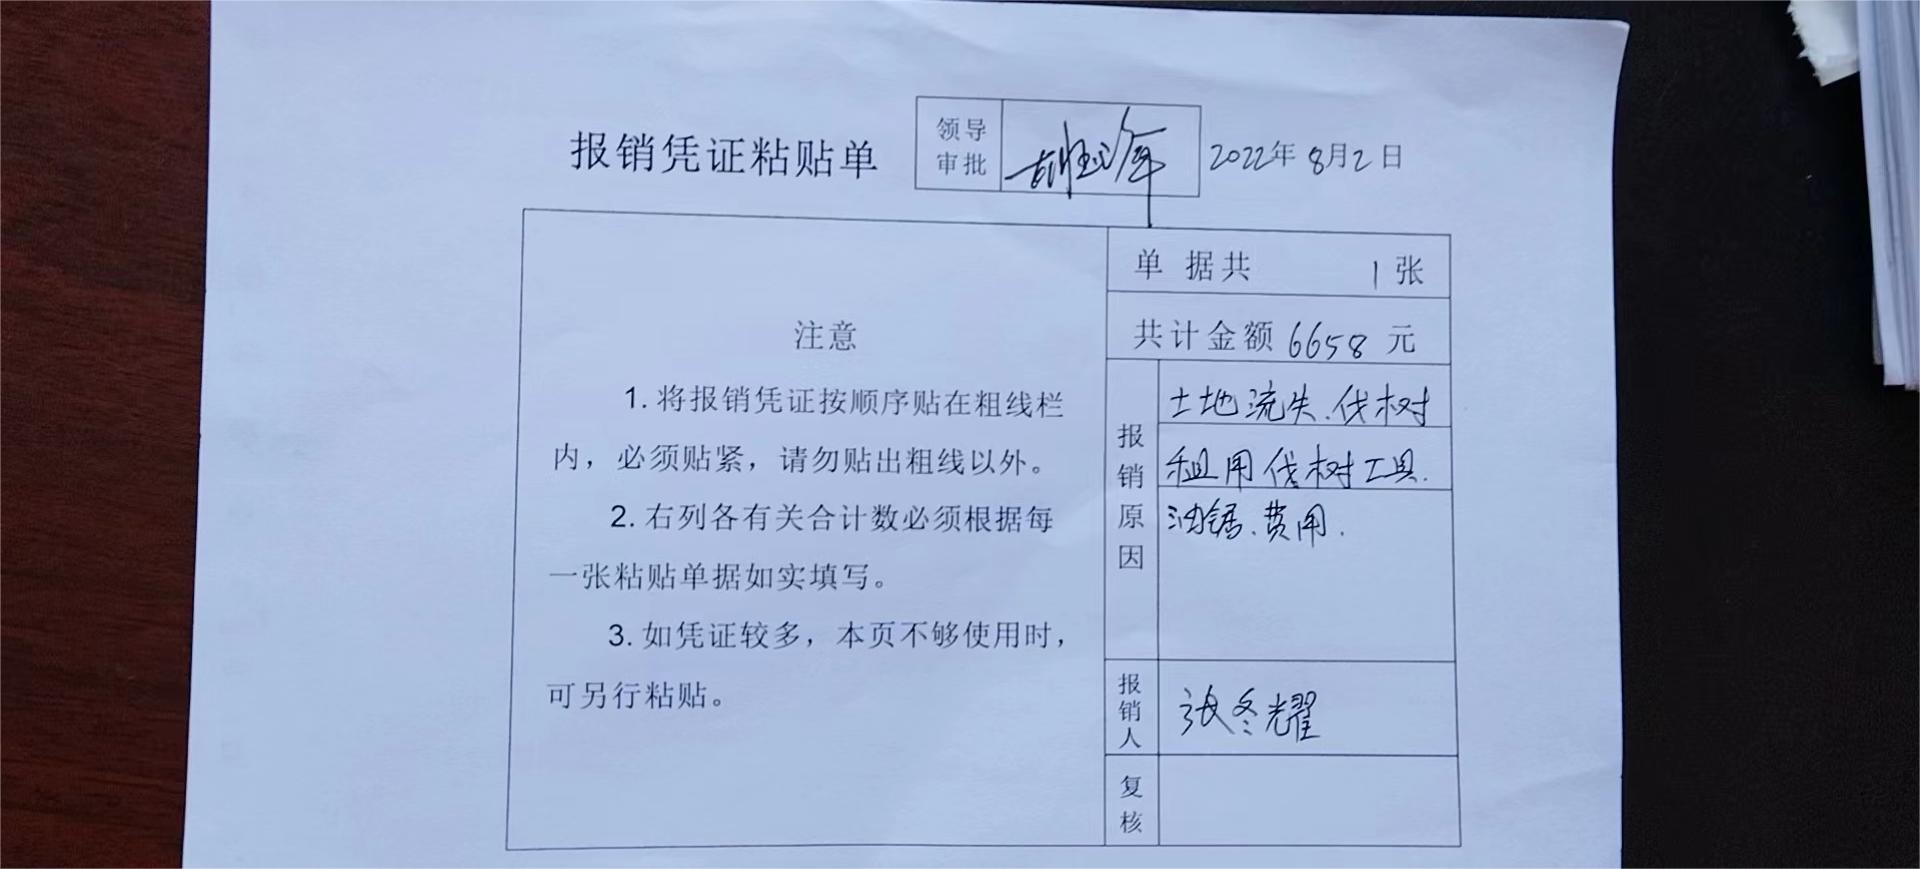 报销凭证粘贴单
领导
审批
2022年8月2日
注意
1. 将报销凭证按顺序贴在粗线栏
内，必须贴紧，请勿贴出粗线以外。
2. 右列各有关合计数必须根据每
一张粘贴单据如实填写。
3. 如凭证较多，本页不够使用时，
可另行粘贴。
单 据共 1张
共计金额 6658 元
报销原因
土地流失、伐树
租用伐树工具.
油锯、费用.
报销人
张冬耀
复核